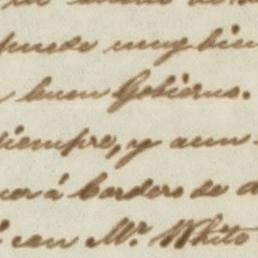 puede muy bien
buen Gobierno.
tiempre, y aun
á bordero de
con Mr. White